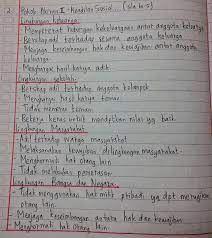 2. Pokok Norma II : Keadilan Sosial (sila ke-5)
Lingkungan keluarga.
- Mempererat hubungan kekeluargaan antar anggota keluarga
- Bersikap adil terhadap sesama anggota keluarga
- Menjaga keseimbangan hak dan kewajiban antar anggota
keluarga.
- Menghargai hasil karya adik.
Lingkungan sekolah.
- Bersikap adil terhadap anggota kelompok
- Menghargai hasil karya teman.
- Tidak memeras teman.
- Bekerja keras untuk mendapatkan nilai yg baik.
Lingkungan Masyarakat
- Adil terhadap warga masyarakat
- Melaksanakan kewajiban di lingkungan masyarakat
- Menghormati hak orang lain.
- Tidak melakukan pemerasan.
Lingkungan Bangsa dan Negara.
- Tidak menggunakan hak milik pribadi yg dpt merugikan
orang lain.
- Menjaga keseimbangan antara hak dan kewajiban
- Menghormati hak orang lain.